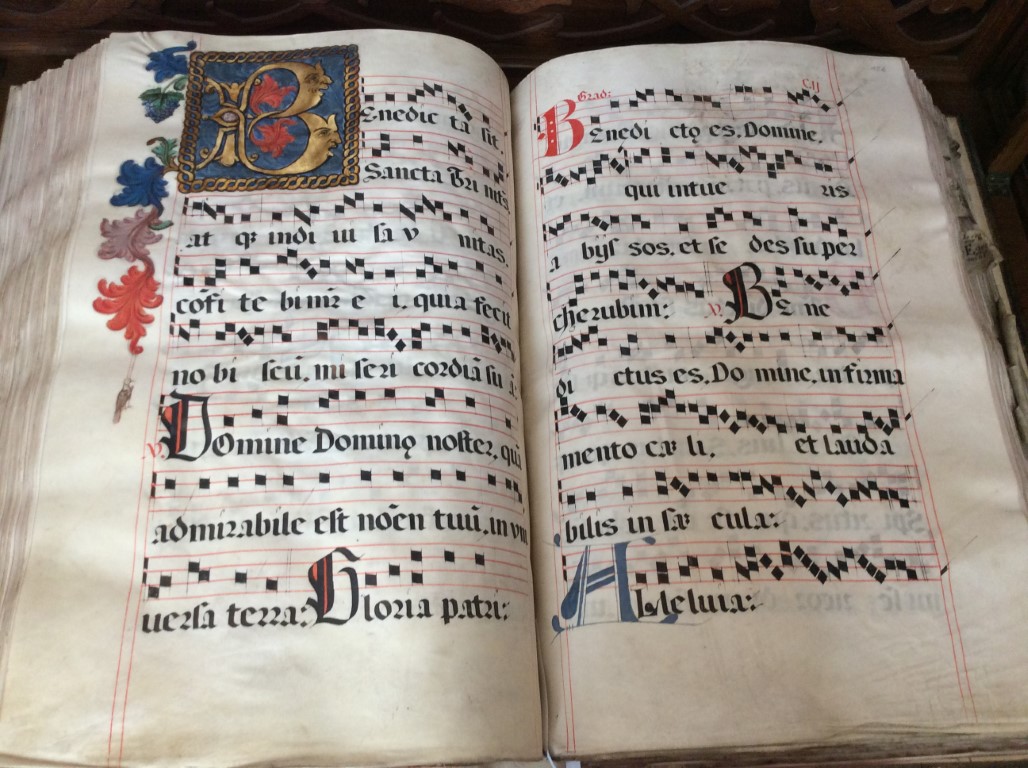 BEnedic ta sit.
Sancta Tri nitas,
at q3 indi ui sa v nitas.
cõfi te bimr̃ e i. quia fecit
no bi scũ. mi seri cordiã su ã:
V. DOmine Dominꝰ noster, quã
admirabile est nõen tuũ. in vni
uersa terra: Gloria patri:
Grad: CII
BEnedi ctꝰ es. Domine,
qui intue ris
a bys sos. et se des su per
cherubim: V. BEne
di ctus es. Do mine. in firma
mento cæ li, et lauda
bilis in sæ cula:
ALleluia: